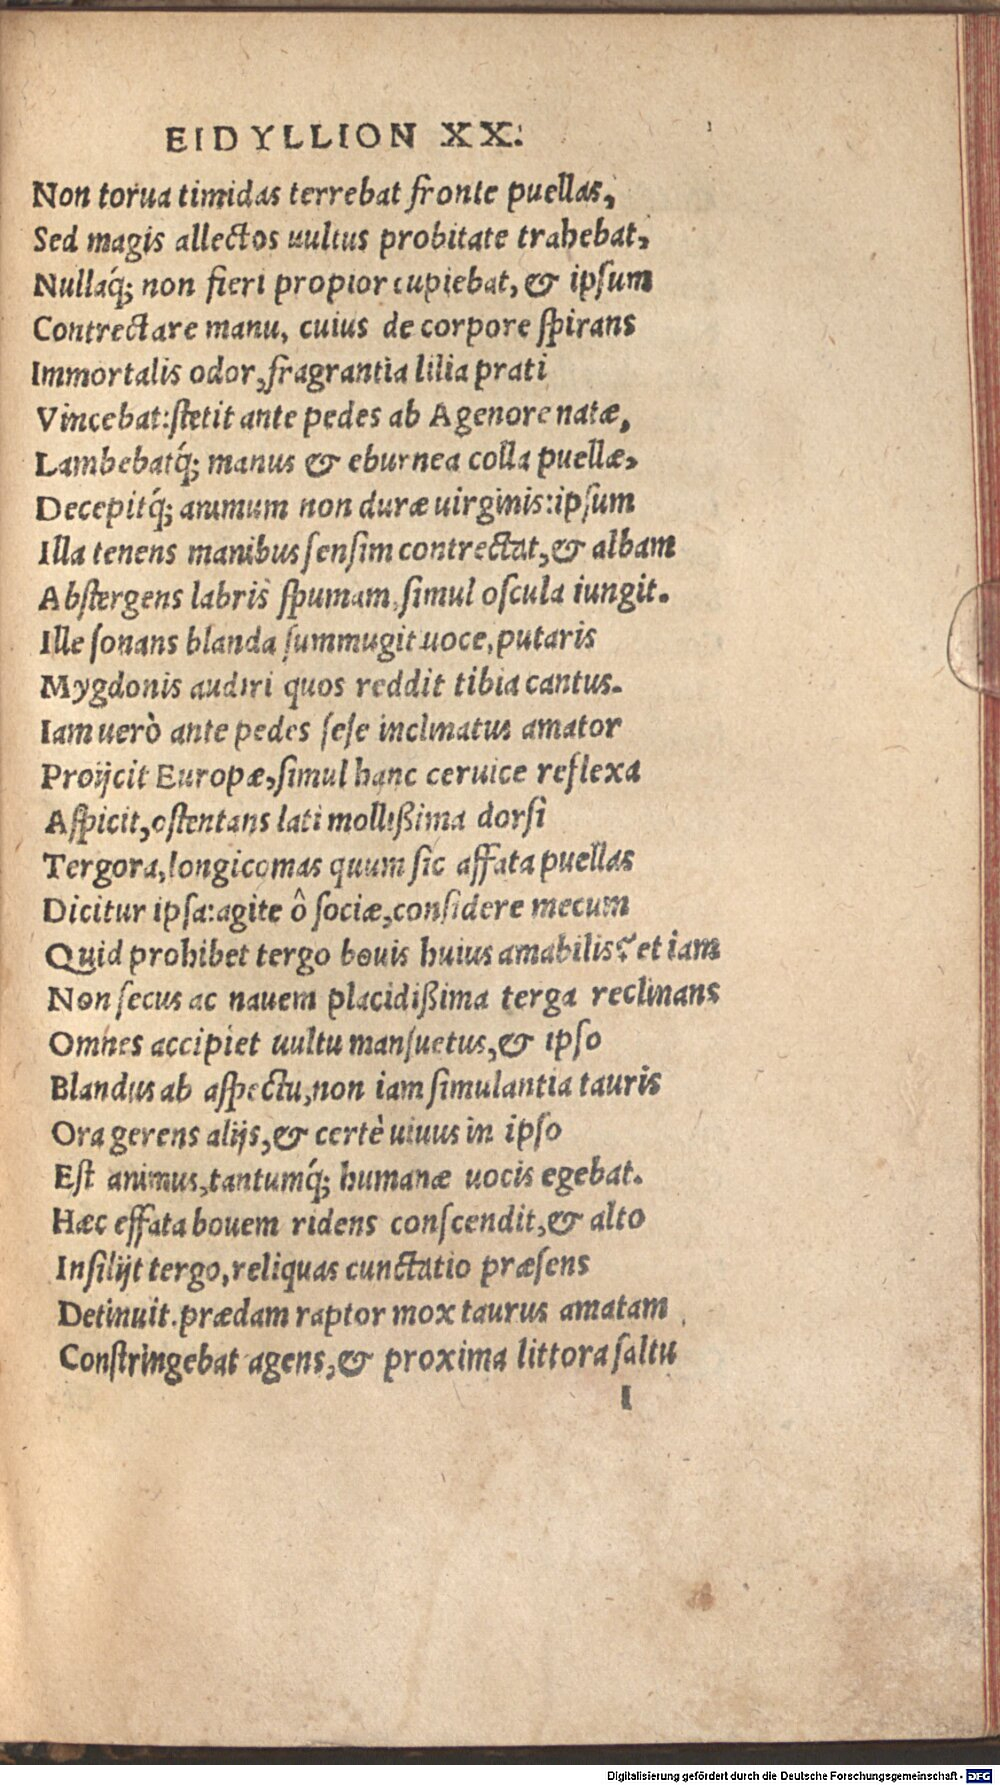 EIDYLLION XX.
Non torua timidas terrebat fronte puellas,
Sed magis allectos uultus probitate trahebat,
Nullaq́; non fieri propior cupiebat, & ipsum
Contrectare manu, cuius de corpore spirans
Immortalis odor, fragrantia lilia prati
Vincebat: stetit ante pedes ab Agenore natæ,
Lambebatq́; manus & eburnea colla puellæ,
Decepitq́; animum non duræ uirginis: ipsum
Illa tenens manibus sensim contrectat, & albam
Abstergens labris spumam, simul oscula iungit.
Ille sonans blanda summugit uoce, putaris
Mygdonis audiri quos reddit tibia cantus.
Iam uerò ante pedes sese inclinatus amator
Proijcit Europæ, simul hanc ceruice reflexa
Aspicit, ostentans lati mollißima dorsi
Tergora, longicomas quum sic affata puellas
Dicitur ipsa: agite ô sociæ, considere mecum
Quid prohibet tergo bouis huius amabilis? et iam
Non secus ac nauem placidißima terga reclinans
Omnes accipiet uultu mansuetus, & ipso
Blandus ab aspectu, non iam simulantia tauris
Ora gerens alijs, & certè uiuus in ipso
Est animus, tantumq́; humanæ uocis egebat.
Hæc effata bouem ridens conscendit, & alto
Insilijt tergo, reliquas cunctatio præsens
Detinuit. prædam raptor mox taurus amatam
Constringebat agens, & proxima littora saltu
I
Digitalisierung gefördert durch die Deutsche Forschungsgemeinschaft - DFG